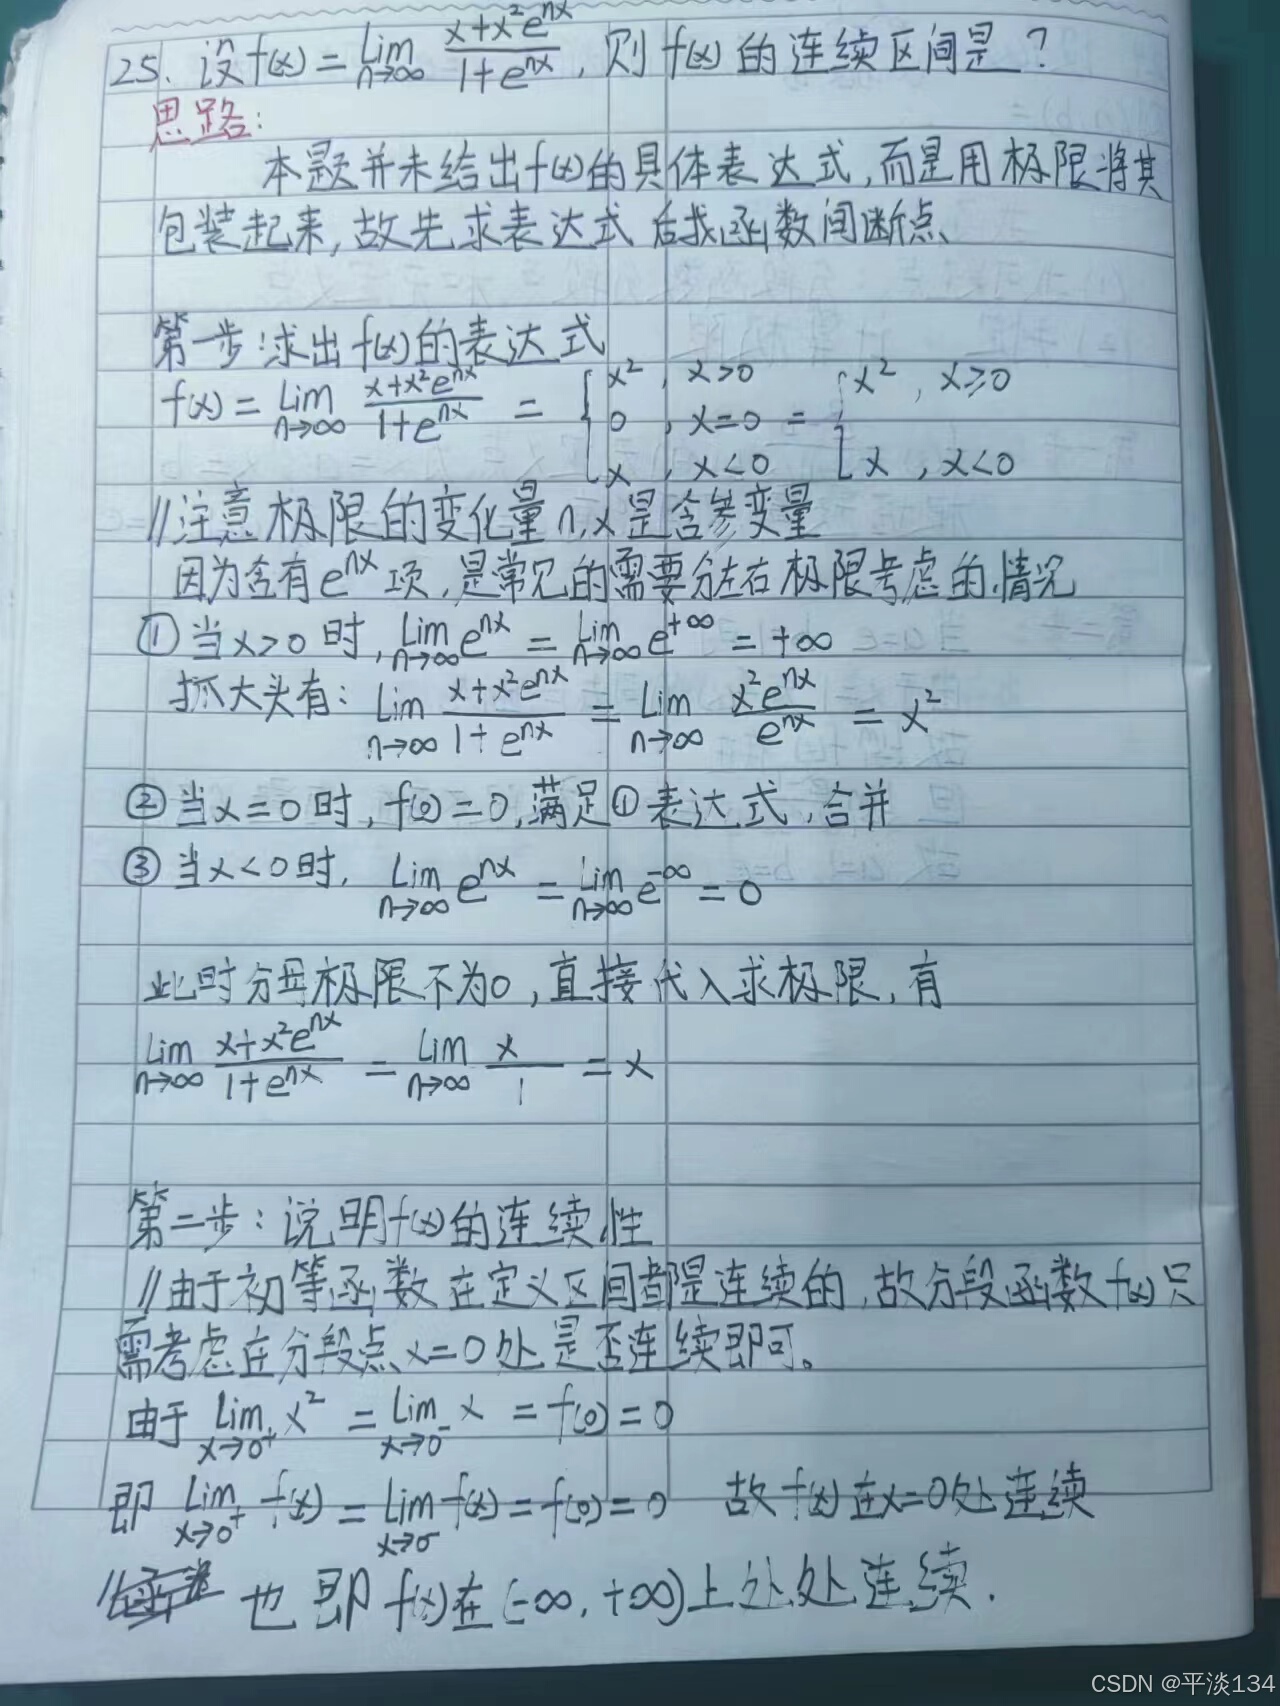 25. 设f(x) = lim n→∞ (x+x²e^{nx})/(1+e^{nx}), 则f(x)的连续区间是?
思路:
本题并未给出f(x)的具体表达式,而是用极限将其
包装起来,故先求表达式后找函数间断点
第一步:求出f(x)的表达式
f(x) = lim n→∞ (x+x²e^{nx})/(1+e^{nx}) = { x², x>0; 0, x=0; x, x<0 = { x², x≥0; x, x<0
//注意极限的变化量n,x是含参变量
因为含有e^{nx}项,是常见的需要分左右极限考虑的情况
①当x>0时, lim n→∞ e^{nx} = lim n→∞ e^{+∞} = +∞
抓大头有: lim n→∞ (x+x²e^{nx})/(1+e^{nx}) = lim n→∞ x²e^{nx}/e^{nx} = x²
②当x=0时, f(0)=0,满足①表达式,合并
③当x<0时, lim n→∞ e^{nx} = lim n→∞ e^{-∞} = 0
此时分母极限不为0,直接代入求极限,有
lim n→∞ (x+x²e^{nx})/(1+e^{nx}) = lim n→∞ x/1 = x
第二步:说明f(x)的连续性
//由于初等函数在定义区间都是连续的,故分段函数f(x)只
需考虑在分段点x=0处是否连续即可。
由于 lim x→0⁺ x² = lim x→0⁻ x = f(0) = 0
即 lim x→0⁺ f(x) = lim x→0⁻ f(x) = f(0) = 0 故f(x)在x=0处连续
也即f(x)在(-∞,+∞)上处处连续.
CSDN @平淡134